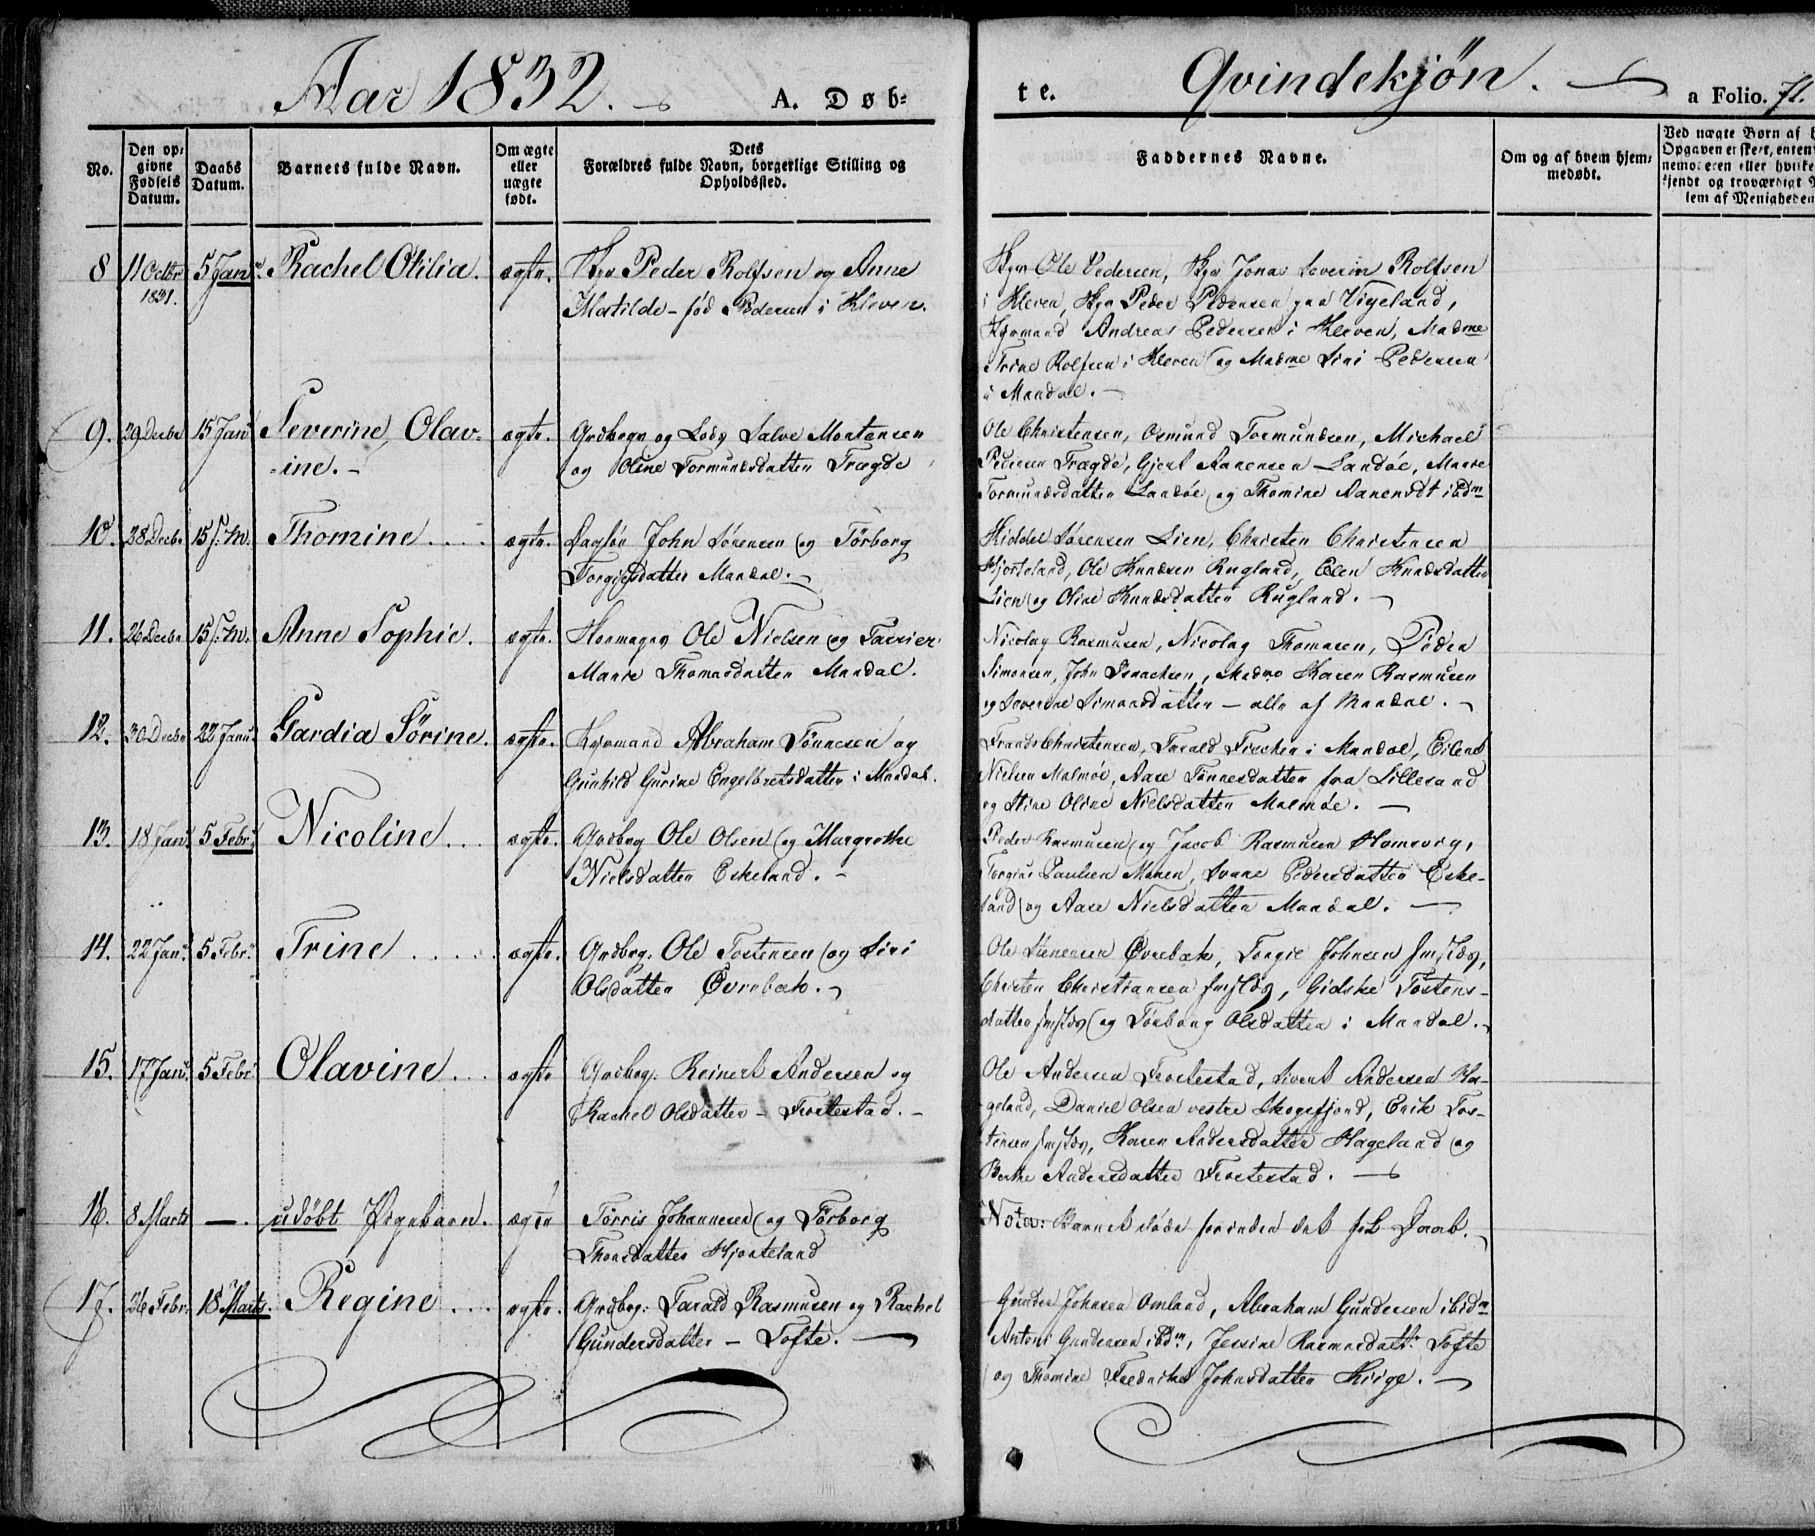 Aar 1832. A. Døb-
te. Qvindekjøn. a Folio. 71.
No.
Den op-
givne
Fødsels
Datum.
Daabs
Datum.
Barnets fulde Navn.
Om ægte
eller
uægte
født.
Dets
Forældres fulde Navn, borgerlige Stilling og
Opholdssted.
Faddernes Navne.
Om og af hvem hjem-
medøbt.
Ved uægte Børn af
Opgaven er skeet, enten
kjendt og troværdigt
lem af Menigheden
8 11 Octbr 5 Janr. Rachel Otilia. ægte. Peder Rolfsen og Anne
1831.
Matilde – fød Pedersen i Kleven.
Ole Pedersen, Jonas Severin Rolfsen
i Kleven, Peder Pedersen paa Vigeland,
Andreas Pedersen i Kleven, Madme
Trine Rolfsen i Kleven og Madme Siri Pedersen
i Mandal. –
9. 29 Decbr 15 Janr Severine Olav-
-ine. –
ægte. Salve Mortensen
og Oline Tormundsdatter Trægde
Ole Christensen, Osmund Tormundsen, Michael
Pedersen Trægde, Gjert Aanensen Landøe, Maren
Tormundsdatter Landøe og Thomine Aanensdt ibdm
10. 28 Decbr 15 s. M. Thomine .... ægte. John Sørensen og Tørborg
Torgiesdatter Mandal. –
Kiddel Sørensen Lien, Christen Christensen
Hjorteland, Ole Knudsen Rugland, Elen Knudsdatter
Lien og Oline Knudsdatter Rugland. –
11. 26 Decbr 15 s. M. Anne Sophie. ægte. Ole Nielsen og
Maren Thomasdatter Mandal.
Nicolay Rasmusen, Nicolay Thomasen, Peder
Simonsen, John Isaachsen, Madme Karen Rasmusen
og Severine Simonsdatter – alle af Mandal. –
12. 30 Decbr 22 Janr. Gardia Sørine. ægte. Abraham Tønnesen og
Gunhild Gurine Engelbretsdatter i Mandal.
Frands Christensen, Tarald Fischer i Mandal, Eilert
Nielsen Malmøe, Aase Tønnesdatter fra Lillesand
og Stine Oline Nielsdatter Malmøe. –
13. 18 Janr 5 Febr. Nicoline .. ægte. Grdbrg Ole Olsen og Margrethe
Nielsdatter Eskeland. –
Peder Rasmusen og Jacob Rasmusen Homevig,
Torgius Paulsen Monen, Svane Pedersdatter Eske-
land og Aase Nielsdatter Mandal. –
14. 22 Janr. 5 Febr. Trine ..... ægte. Grdbrg. Ole Tostensen og Siri
Olsdatter Øvrebæk. –
Ole Øvrebæk, Torgie Johnsen
Christen Christiansen Gidske Tostens-
datter og Tørborg Olsdatter i Mandal. –
15. 17 Janr. 5 Febr. Olavine ... ægte Grdbrg. Reinert Andersen og
Rachel Olsdatter – Froitestad. –
Ole Andersen Froitestad, Sivert Andersen Ha-
geland, Daniel Olsen vestre Skogsfjord, Erik Tos-
tensen Karen Andersdatter Hageland og
Berthe Andersdatter Froitestad. –
16. 8 Marts –. udøbt Pigebarn. ægte Tørris Johannesen og Tørborg
Thorsdatter Hjorteland
Nota: Barnet døde forinden det fik Daab. –
17. 26 Febr. 18 Marts. Regine ... ægte. Grdbrg: Tarald Rasmusen og Rachel
Gundersdatter – Tofte. –
Gunder Johnsen Omland, Abraham Gundersen ibidm
Antoni Gundersen ibdm, Jessine Rasmusdatt. Tofte
og Thomine Fredrikke Johnsdatter Kiige. –